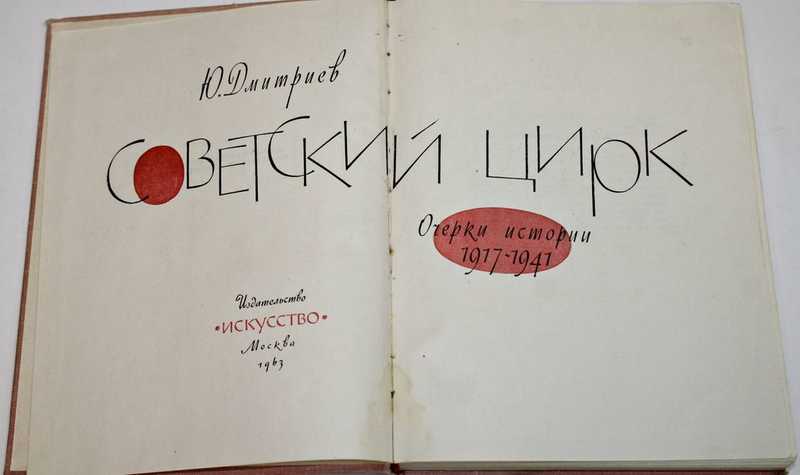 Ю. Дмитриев
СОВЕТСКИЙ ЦИРК
Очерки истории
1917-1941
Издательство
•ИСКУССТВО•
Москва
1963